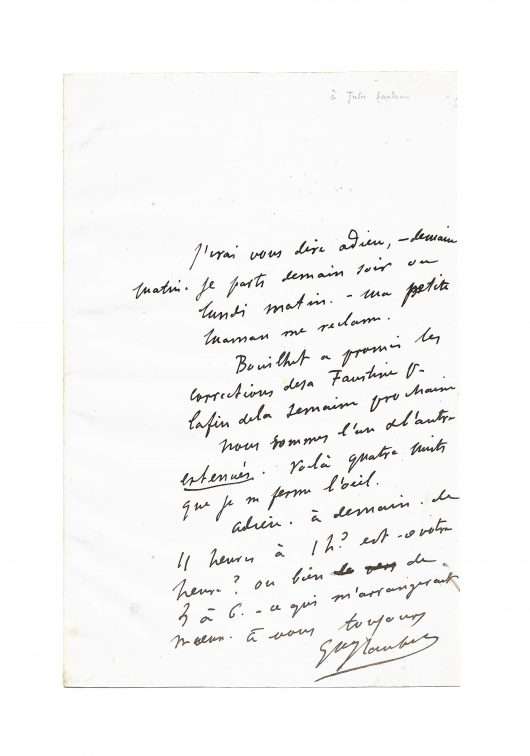 à Jules
J'irai vous dire adieu, – demain
matin. Je parts demain soir ou
lundi matin. – ma petite
maman me réclame.
Bouilhet a promis les
corrections desa Faustine p.
lafin dela semaine prochaine
nous sommes l'un & l'autre
extenués. Voilà quatre nuits
que je n ferme l'oeil.
adieu. à demain. de
11 heures à 1 h? est-ce votre
heure? ou bien de
5 à 6. – ce qui m'arrangerait
mieux. à vous toujours
GveFlaubert